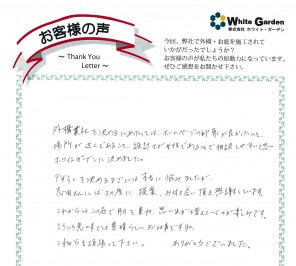 お客様の声
～ Thank You
Letter ～
White Garden
株式会社 ホワイト・ガーデン
今回、弊社で外構・お庭を施工されて
いかがだったでしょうか?
お客様の声が私たちの原動力になっています。
ぜひご感想をお聞かせ下さい。
外構業社を決めるにあたっては、ホームページの印象が良かったのと、
場所が近くであること、設計士が女性であるので相談しやすいと思い
ホワイトガーデンに決めました。
デザインを決めるまでには本当に悩みましたが、
には その度に 提案、お付き合い頂き感謝しています。
これからは この庭で 月日を重ね、思い出が増えていくのが楽しみです。
そういう意味では素晴らしいお仕事ですね。
これからも頑張って下さい。 ありがとうございました。